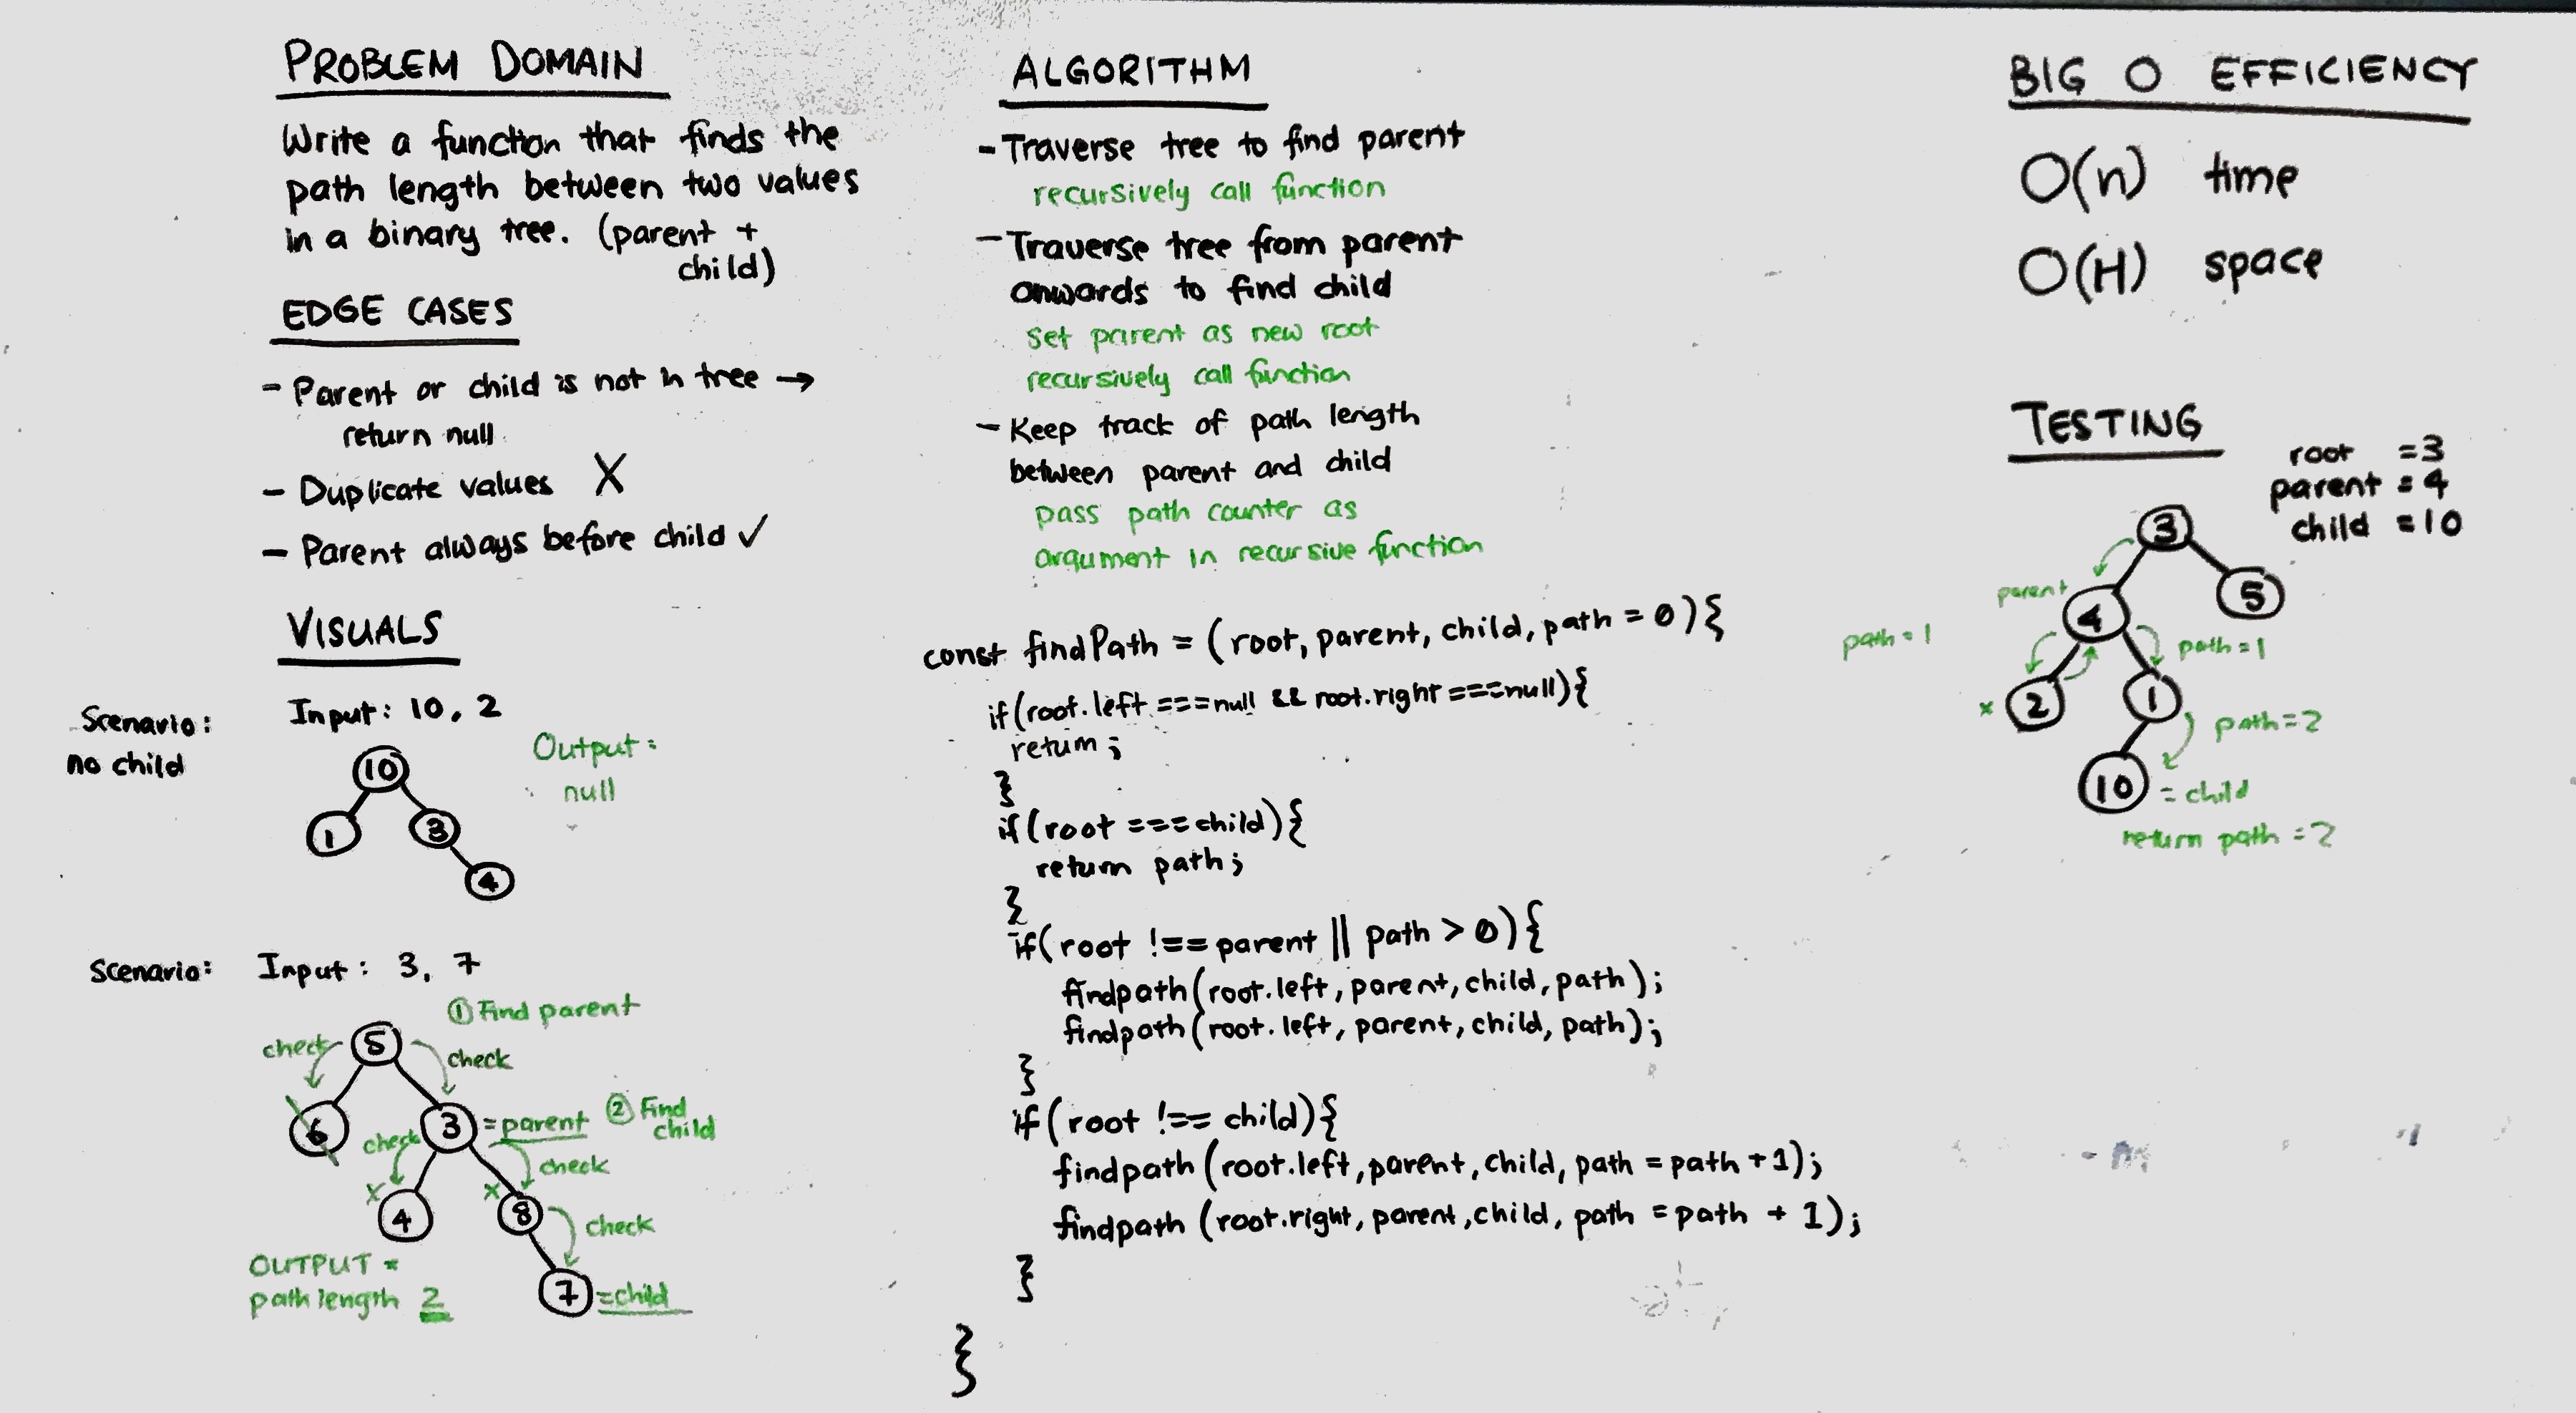 PROBLEM DOMAIN
Write a function that finds the
path length between two values
in a binary tree. (parent +
child)
EDGE CASES
- Parent or child is not in tree →
return null
- Duplicate values X
- Parent always before child ✓
VISUALS
Scenario:
no child
Input: 10, 2
Output:
null
10
1
3
4
Scenario: Input: 3, 7
① Find parent
5
check
check
6
3
= parent
② Find
child
check
check
x
x
4
8
check
OUTPUT =
path length 2
7
= child
ALGORITHM
- Traverse tree to find parent
recursively call function
- Traverse tree from parent
onwards to find child
set parent as new root
recursively call function
- Keep track of path length
between parent and child
pass path counter as
argument in recursive function
const findPath = (root, parent, child, path = 0){
if(root.left === null && root.right === null){
return;
}
if(root === child){
return path;
}
if(root !== parent || path > 0){
findpath(root.left, parent, child, path);
findpath(root.left, parent, child, path);
}
if(root !== child){
findpath(root.left, parent, child, path = path + 1);
findpath(root.right, parent, child, path = path + 1);
}
}
BIG O EFFICIENCY
O(n) time
O(H) space
TESTING
root = 3
parent = 4
child = 10
3
parent
4
5
path = 1
path = 1
x
2
1
path = 2
10
= child
return path = 2